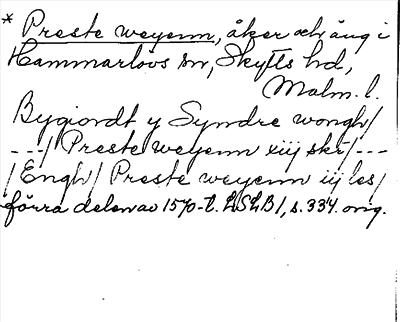 * Preste weyenn, åker och äng i
Hammarlövs sn, Skytts hd,
Malm. l.
Bygiordt y Syndre wongh/
---/ Preste weyenn xiij skr/---
/Engh/ Preste weyenn iij les/
förra delen av 1570-t. LSLB1, s. 334. orig.